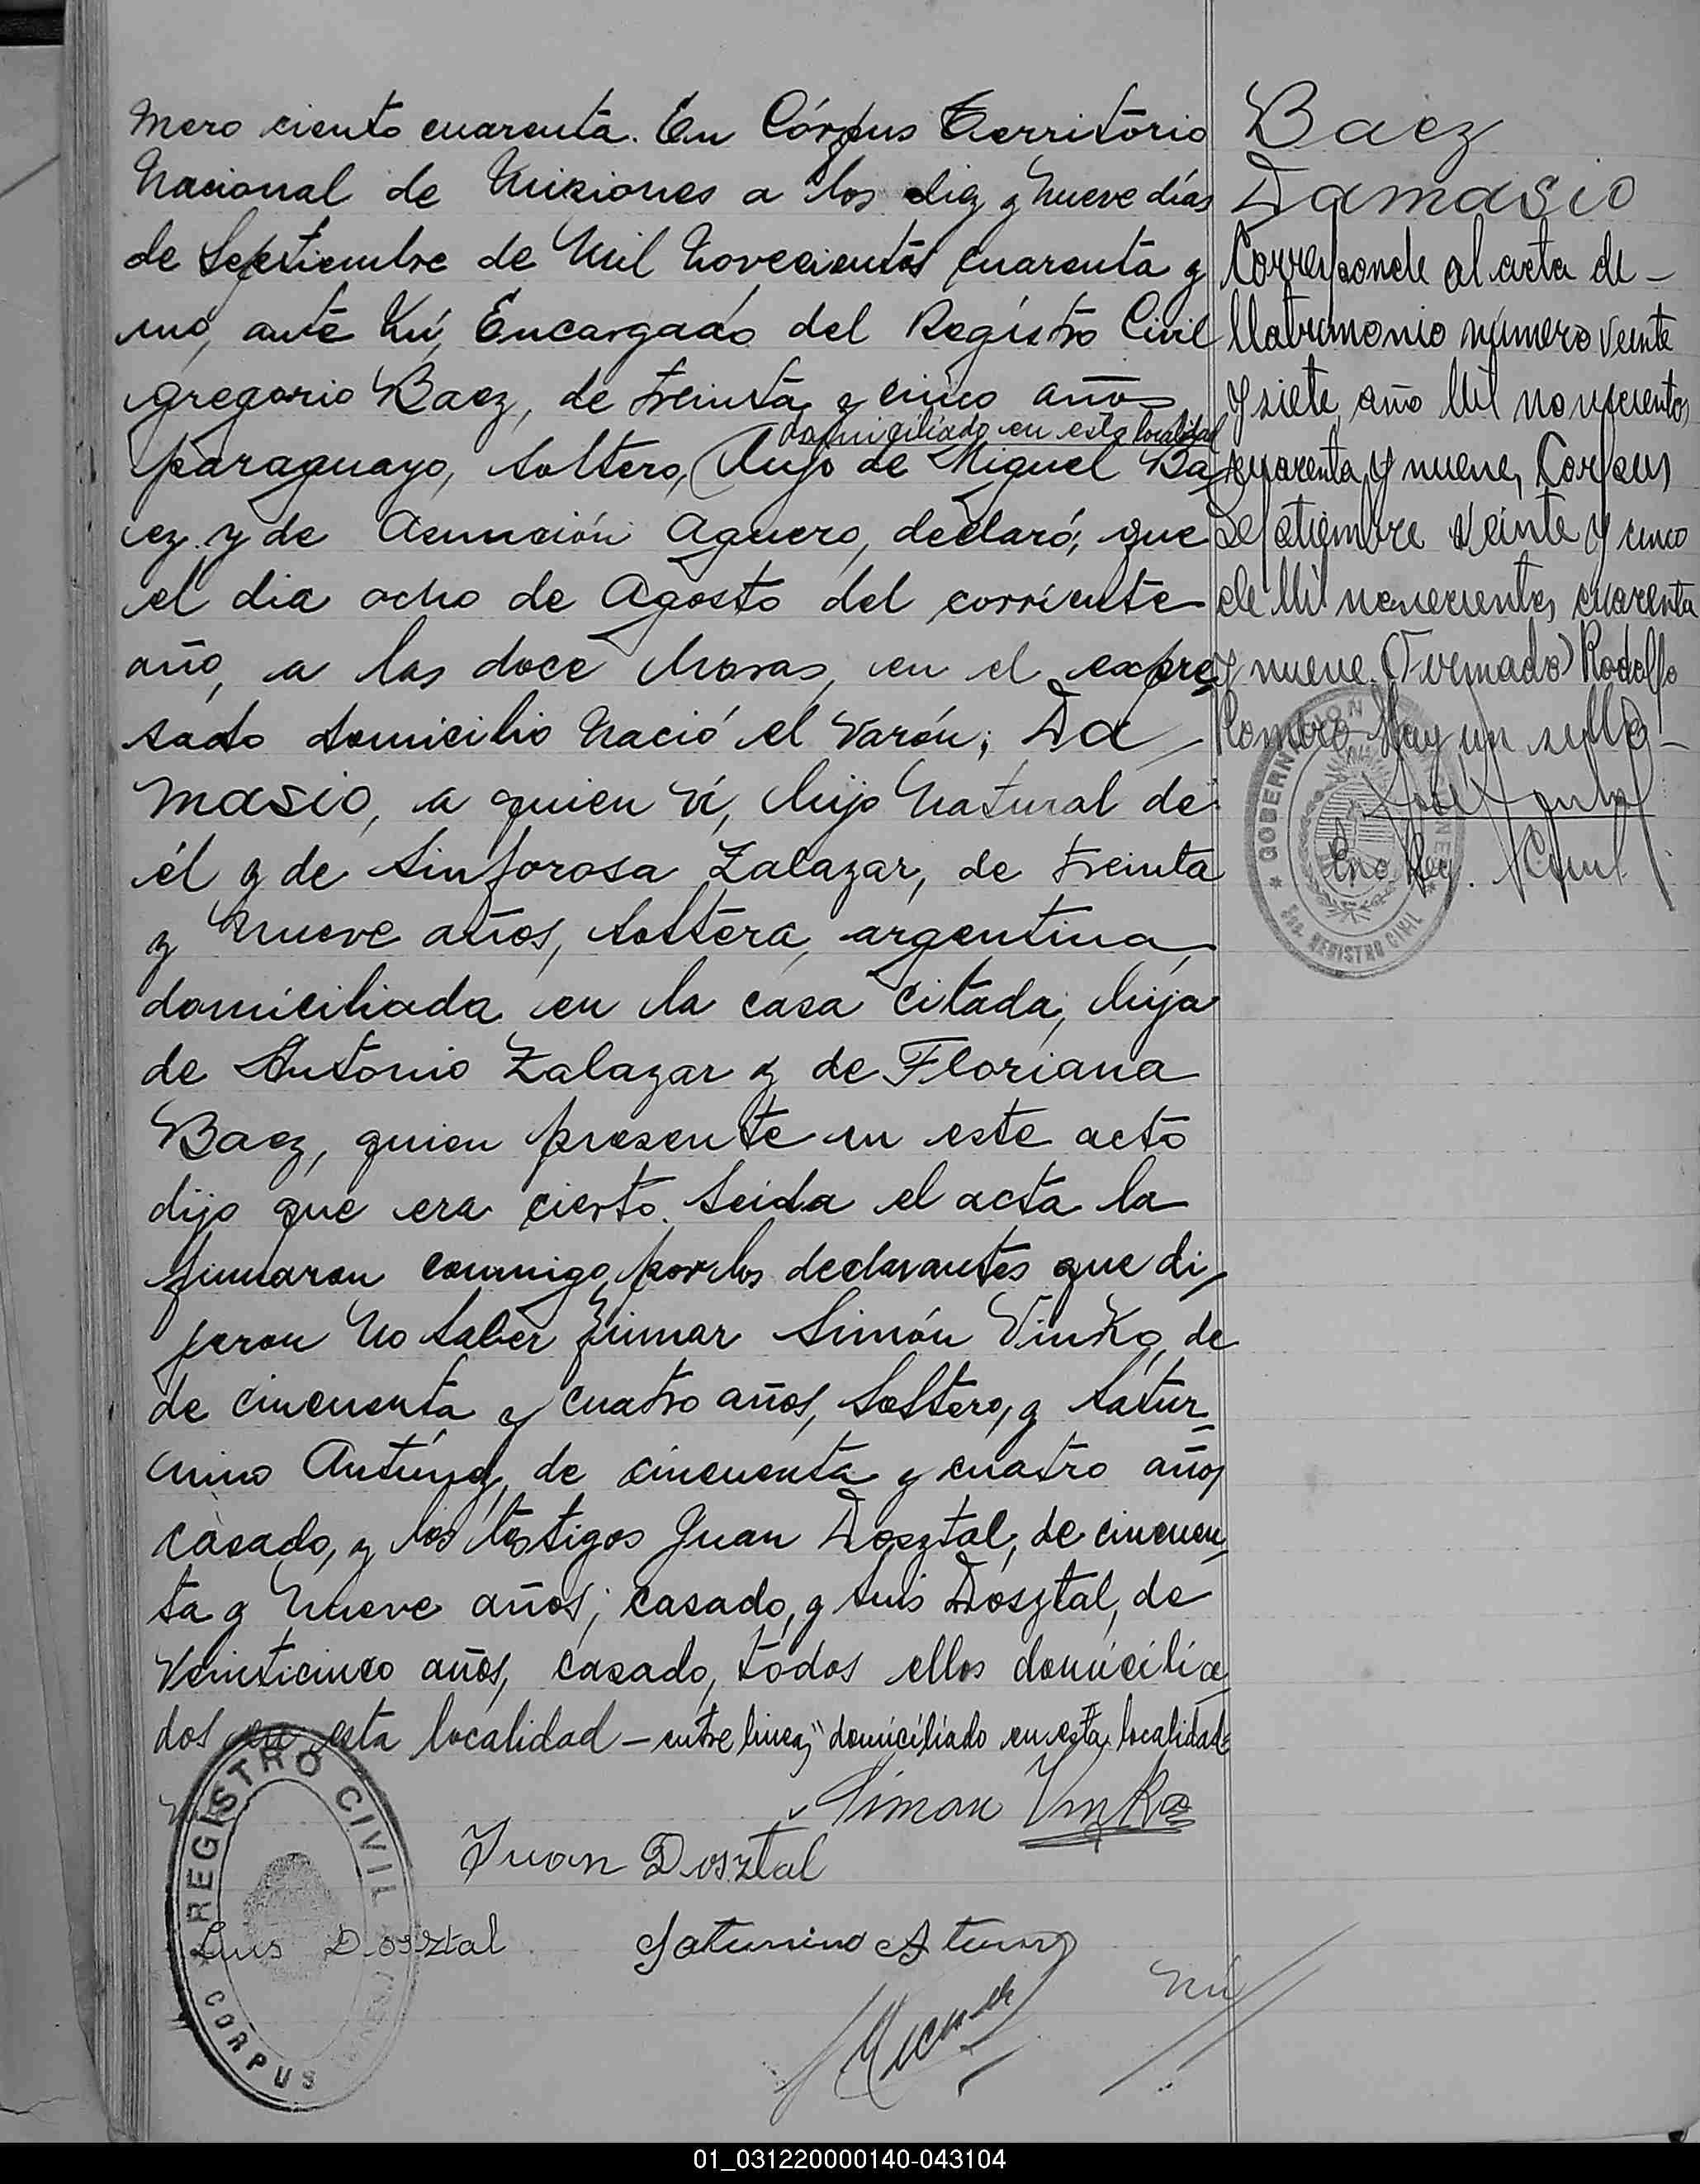 Mero ciento cuarenta. En Córpus Territorio
Nacional de Misiones a los diez y nueve días
de Septiembre de Mil novecientos cuarenta y
uno, ante Mí, Encargado del Registro Civil
Gregorio Baez, de treinta y cinco años
domiciliado en esta localidad
paraguayo, soltero, (hijo de Miguel Ba
ez y de Asunción Aguero, declaró; que
el dia ocho de Agosto del corriente
año, a las doce horas, en el expre
sado domicilio nació el varón; Da
masio, a quien ví, hijo natural de
él y de Sinforosa Zalazar, de treinta
y nueve años, soltera, argentina
domiciliada en la casa citada, hija
de Antonio Zalazar y de Floriana
Baez, quien presente en este acto
dijo que era cierto. Leida el acta la
firmaron conmigo, por los declarantes que di
jeron no saber firmar Simón Vinka, de
de cincuenta y cuatro años, soltero, y Satur
nino Antúnez, de cincuenta y cuatro años
casado, y los testigos Juan Dosztal, de cincuen
ta y nueve años; casado, y Luis Dosztal, de
veinticinco años, casado, todos ellos domicilia
dos en esta localidad – entre linea; "domiciliado en esta localidad"
Simon Vinka
Juan Dosztal
Luis Dosztal
Saturnino
REGISTRO CIVIL
CORPUS
Baez
Damasio
Corresponde al acta de –
Matrimonio número veinte
y siete año Mil novecientos
cuarenta y nueve, Corpus
Septiembre veinte y cinco
de Mil novecientos cuarenta
y nueve (Firmado) Rodolfo
Romero Hay un sello –
Enc. Reg. Civil
GOBERNACION
REGISTRO CIVIL
01_031220000140-043104